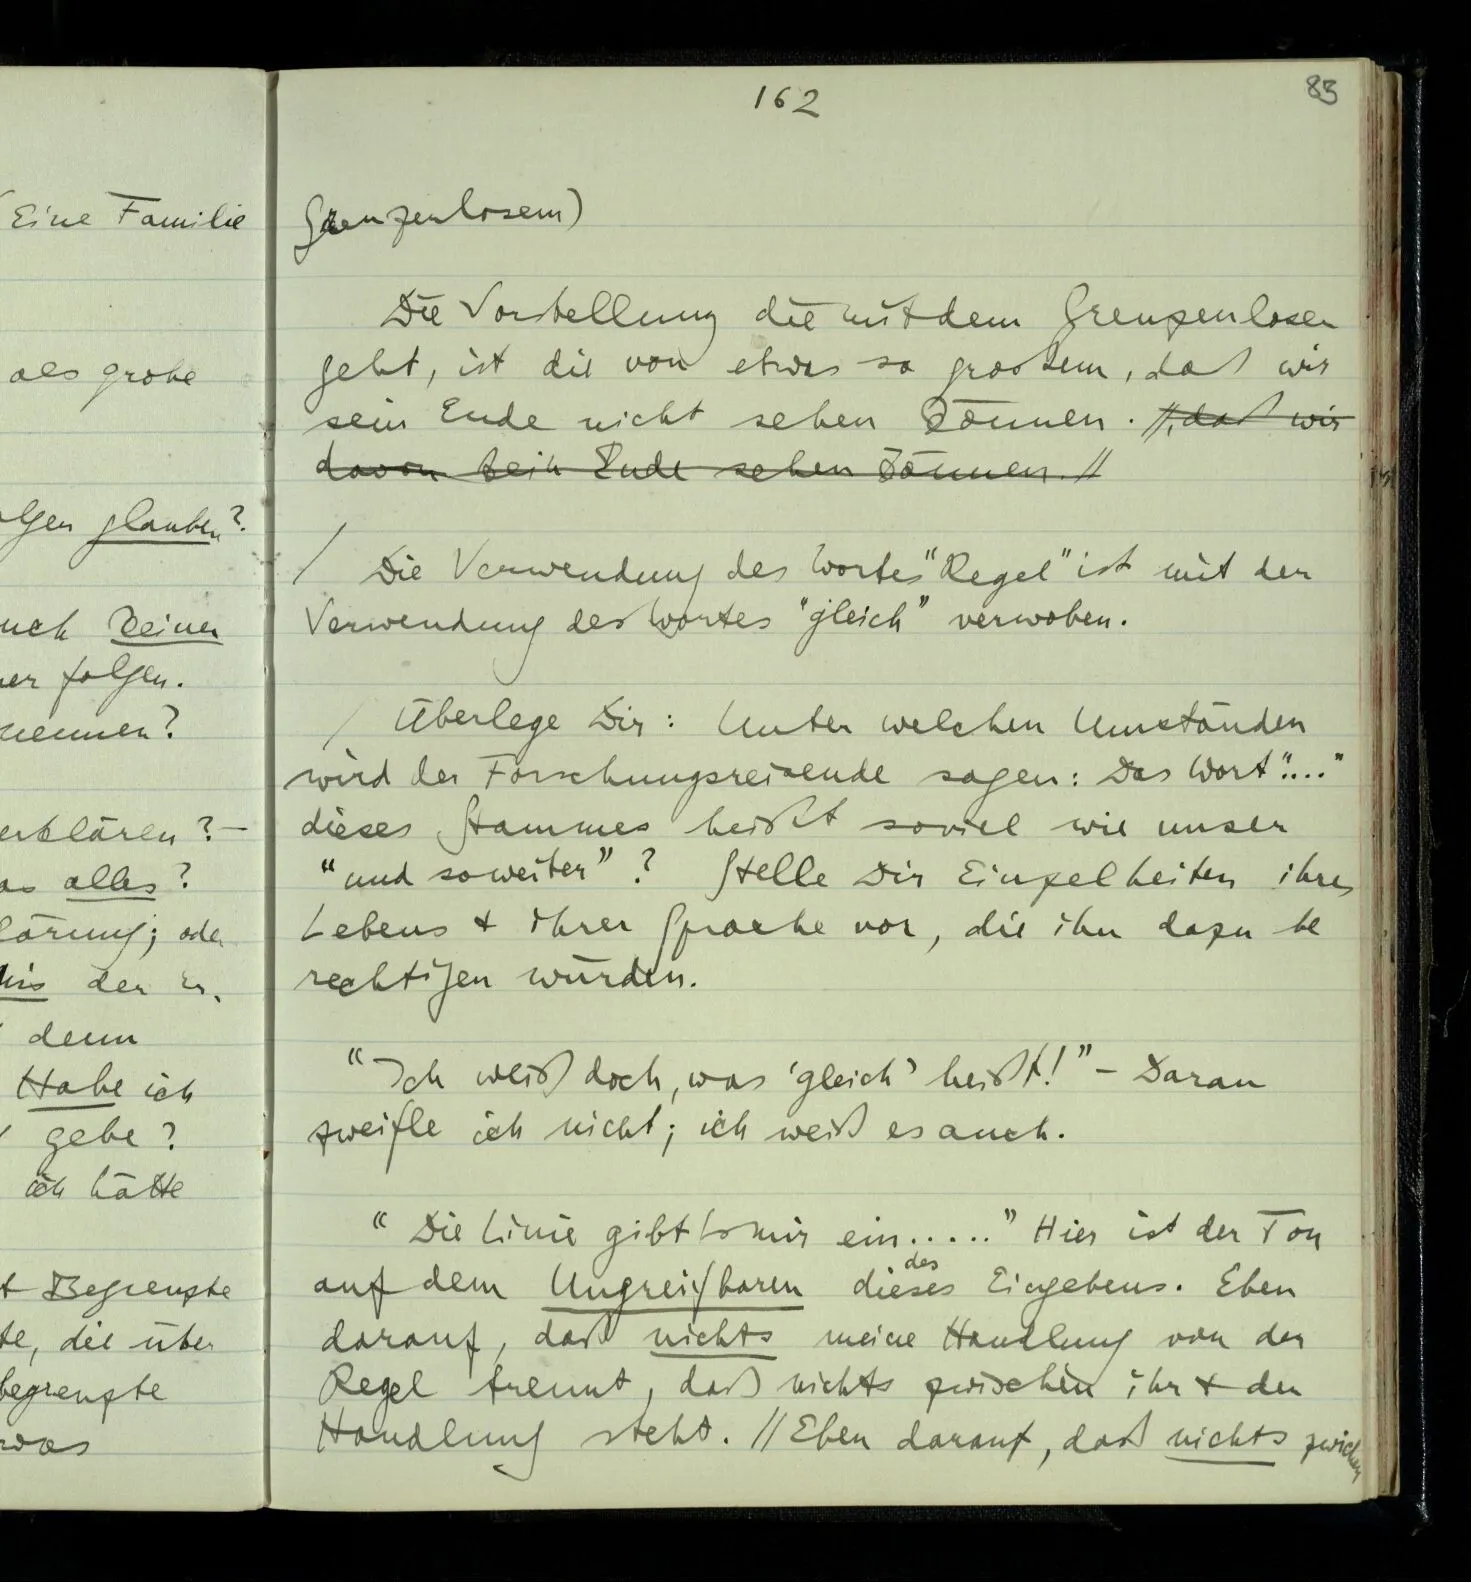 Eine Familie
als grobe
glauben?
keiner
folgen.
nennen?
erklären? –
alles?
; oder
der Er-
denn
Habe ich
gebe?
ich hätte
Begrenzte
, die über
begrenzte
162
83
Grenzenlosem)
Die Vorstellung die mit dem Grenzenlosen
geht, ist die von etwas so großem, daß wir
sein Ende nicht sehen können. //, daß wir
davon kein Ende sehen können. //
/ Die Verwendung des Wortes "Regel" ist mit der
Verwendung des Wortes "gleich" verwoben.
/ Überlege Dir: Unter welchen Umständen
wird der Forschungsreisende sagen: Das Wort "...."
dieses Stammes heißt soviel wie unser
"und so weiter"? Stelle Dir Einzelheiten ihres
Lebens + ihrer Sprache vor, die ihn dazu be
rechtigen würden.
"Ich weiß doch, was 'gleich' heißt!" – Daran
zweifle ich nicht; ich weiß es auch.
"Die Linie gibt's mir ein....." Hier ist der Ton
des
auf dem Ungreifbaren dieses Eingebens. Eben
darauf, daß nichts meine Handlung von der
Regel trennt, daß nichts zwischen ihr + der
Handlung steht. // Eben darauf, daß nichts zwischen